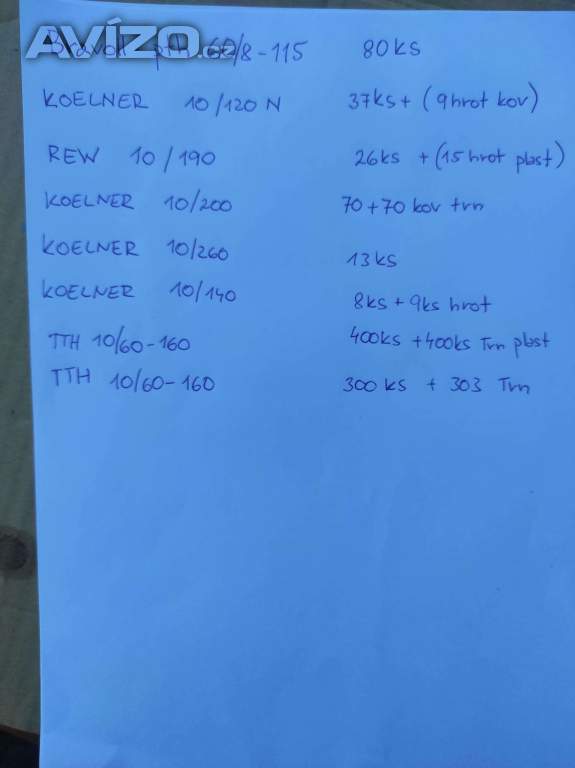 AVÍZO.cz
Bravoll pth 60/8-115 80ks
KOELNER 10/120 N 37ks + (9hrot kov)
REW 10/190 26ks + (15 hrot plast)
KOELNER 10/200 70+70 kov trn
KOELNER 10/260 13ks
KOELNER 10/140 8ks + 9ks hrot
TTH 10/60-160 400ks +400ks Trn plast
TTH 10/60-160 300 ks + 303 Trn